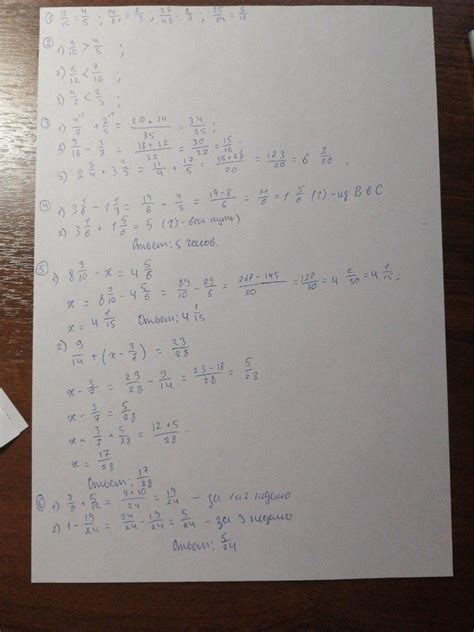 ① 12/15 = 4/5 ; 14/21 = 2/3 ; 32/48 = 2/3 ; 35/84 = 5/12
②
1) 9/10 > 4/5 ;
2) 5/12 < 7/16 ;
3) 4/7 < 2/3 ;
③ 1) 4/7 + 2/5 = 20+14/35 = 34/35 ;
= 18+12/32 = 30/32 = 15/16 ;
5) 2 3/4 + 3 2/5 = 11/4 + 17/5 = 55+68/20 = 123/20 = 6 3/20 ;
④ 1) 3 1/6 - 1 1/3 = 19/6 - 4/3 = 19-8/6 = 11/6 = 1 5/6 (ч) - из В в С
2) 3 1/6 + 1 5/6 = 5 (ч) - весь путь)
Ответ: 5 часов.
⑤ 1) 8 9/10 - x = 4 5/6
x = 8 9/10 - 4 5/6 = 89/10 - 29/6 = 267-145/30 = 122/30 = 4 2/30 = 4 1/15 ;
x = 4 1/15 Ответ: 4 1/15
2) 9/14 + (x - 3/7) = 23/28
x - 3/7 = 23/28 - 9/14 = 23-18/28 = 5/28
x - 3/7 = 5/28
x = 3/7 + 5/28 = 12+5/28
x = 17/28
Ответ: 17/28
⑥ 1) 3/8 + 5/12 = 9+10/24 = 19/24 - за 1 и 2 неделю
2) 1 - 19/24 = 24/24 - 19/24 = 5/24 - за 3 неделю
Ответ: 5/24